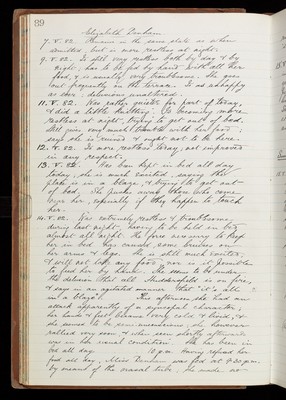 89
Elizabeth Denham
7. 8. 02. Remains in the same state as when
admitted, but is more restless at night.
9. 8. 02. Is still very restless both by day & by
night, has to be fed by hand with all her
food, & is usually very troublesome. She goes
out frequently on the terrace. Is as unhappy
as ever; delusions unaltered.
11. 8. 02. Was rather quieter for part of today,
& did a little knitting. Is becoming more
restless at night, trying to get out of bed.
Still gives very much trouble with her food;
says she is ruined & ought not to be here.
12. 8. 02. Is more restless today, not improved
in any respect.
13. 8. 02. Has been kept in bed all day
today, she is much excited, saying the
place is in a blaze, & trying to get out
of bed. She pushes away those who come
near her, especially if they happen to touch
her.
14. 8. 02. Was extremely restless & troublesome
during last night, having to be held in bed
almost all night. The force necessary to keep
her in bed has caused some bruises on
her arms & legs. She is still much excited,
& will not take any food, nor is it possible
to feed her by hand. She seems to be under
the delusion that all Huddersfield is on fire,
& says in an agitated manner that "it's all
in a blaze". This afternoon she had an
attack apparently of a syncopal character;
her hands & feet became very cold & livid, &
she seemed to be semi-unconscious; she however
rallied very soon & when seen shortly afterwards
was in her usual condition. She has been in
bed all day. 10 p.m. Having refused her
food all day, Miss Denham was fed at 8.30 p.m.
by means of the nasal tube. She made no